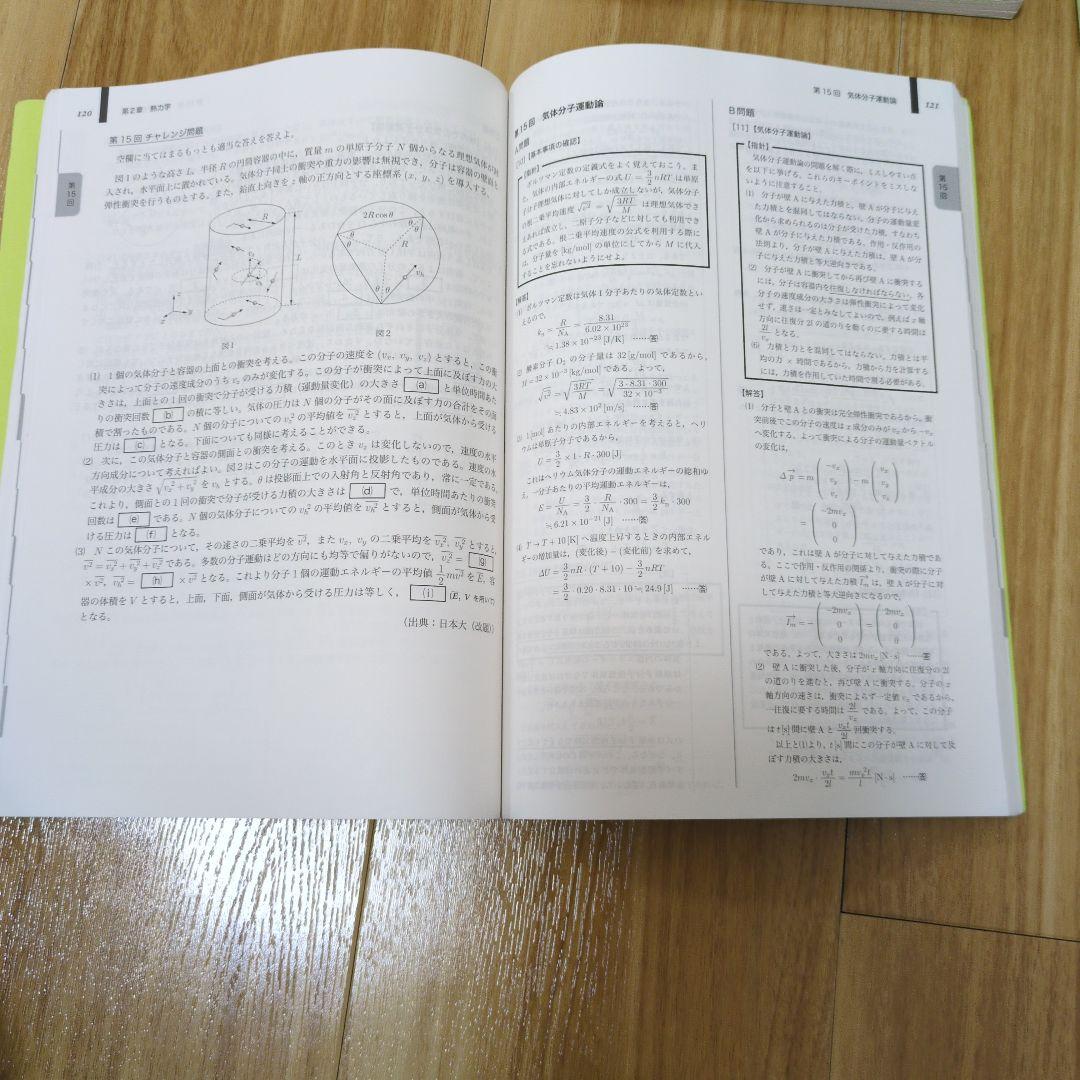 120 第2章 熱力学
第15回 チャレンジ問題
空欄に当てはまるもっとも適当な答えを答えよ。
図1のような高さL，半径Rの円筒容器の中に，質量mの単原子分子N個からなる理想気体が封
入され，水平面上に置かれている。気体分子同士の衝突や重力の影響は無視でき，分子は容器の壁面と
弾性衝突を行うものとする。また，鉛直上向きをz軸の正方向とする座標系(x, y, z)を導入する。
R
L
z
y
x
図1
2R cos θ
θ
θ
θ
R
θ
θ
v_h
図2
(1) 1個の気体分子と容器の上面との衝突を考える。この分子の速度を(v_x, v_y, v_z)とすると，この衝
突によって分子の速度成分のうちv_zのみが変化する。この分子が衝突によって上面に及ぼす力の大
きさは，上面との1回の衝突で分子が受ける力積（運動量変化）の大きさ (a) と単位時間あた
りの衝突回数 (b) の積に等しい。気体の圧力はN個の分子がその面に及ぼす力の合計をその面
積で割ったものである。N個の分子についてのv_z²の平均値を\overline{v_z²}とすると，上面が気体から受ける
圧力は (c) となる。下面についても同様に考えることができる。
(2) 次に，この分子と容器の側面との衝突を考える。このときv_zは変化しないので，速度の水平
方向成分について考えればよい。図2はこの分子の運動を水平面に投影したものである。速度の水
平成分の大きさ√(v_x²+v_y²)をv_hとする。θは投影面上での入射角と反射角であり，常に一定である。
これより，側面との1回の衝突で分子が受ける力積の大きさは (d) で，単位時間あたりの衝突
回数は (e) である。N個の気体分子についてのv_h²の平均値を\overline{v_h²}とすると，側面が気体から受
ける圧力は (f) となる。
(3) Nこの気体分子について，その速さの二乗平均を\overline{v²}，またv_x，v_yの二乗平均を\overline{v_x²}，\overline{v_y²}とすると，
\overline{v²}=\overline{v_x²}+\overline{v_y²}+\overline{v_z²}である。多数の分子運動はどの方向にも均等で偏りがないので，\overline{v_z²}= (g)
×\overline{v²}，\overline{v_h²}= (h) ×\overline{v²}となる。これより分子1個の運動エネルギーの平均値\frac{1}{2}m\overline{v²}を\overline{E}，容
器の体積をVとすると，上面，下面，側面が気体から受ける圧力は等しく， (i) (\overline{E}, Vを用いて)
となる。
（出典：日本大（改題））
第15回
第15回 気体分子運動論
A問題
【基本事項の確認】
【指針】
ボルツマン定数の定義式をよく覚えておこう。ま
た，気体の内部エネルギーの式U=\frac{3}{2}nRTは単原
子分子理想気体に対してしか成立しないが，気体分子
の根二乗平均速度√\overline{v²}=√\frac{3RT}{M}は理想気体でさ
えあれば成立し，二原子分子などに対しても利用でき
る式である。根二乗平均速度の公式を利用する際に
は，分子量を[kg/mol]の単位にしてからMに代入
することを忘れないようにせよ。
【解答】
(1) ボルツマン定数は気体1分子あたりの気体定数とい
えるので，
k_B=\frac{R}{N_A}=\frac{8.31}{6.02×10^{23}}
≒1.38×10^{-23}[J/K] ……答
(2) 酸素分子O₂の分子量は32[g/mol]であるから，
M=32×10^{-3}[kg/mol]である。よって，
√\overline{v²}=√\frac{3RT}{M}=√\frac{3·8.31·300}{32×10^{-3}}
≒4.83×10²[m/s] ……答
(3) 1[mol]あたりの内部エネルギーを考えると，ヘリ
ウムは単原子分子であるから，
U=\frac{3}{2}×1·R·300[J]
これはヘリウム気体分子の運動エネルギーの総和ゆ
え，一分子あたりの平均運動エネルギーは，
E=\frac{U}{N_A}=\frac{3}{2}·\frac{R}{N_A}·300=\frac{3}{2}k_B·300
≒6.21×10^{-21}[J] ……答
(4) T→T+10[K]へ温度上昇するときの内部エネル
ギーの増加量は，(変化後)−(変化前)を求めて，
ΔU=\frac{3}{2}nR·(T+10)−\frac{3}{2}nRT
=\frac{3}{2}·0.20·8.31·10≒24.9[J] ……答
第15回 気体分子運動論 121
B問題
[11]【気体分子運動論】
【指針】
気体分子運動論の問題を解く際に，ミスしやすい点
を以下に挙げる。これらのキーポイントをミスしな
いように注意すること。
(1) 分子が壁Aに与えた力積と，壁Aが分子に与え
た力積とを混同してはならない。分子の運動量変
化から求められるのは分子が受けた力積，すなわち
壁Aが分子に与えた力積である。作用・反作用の
法則より，分子が壁Aに与えた力積は，壁Aが分
子に与えた力積と等大逆向きである。
(2) 分子が壁Aに衝突してから再び壁Aに衝突する
には，分子は容器内を往復しなければならない。各
分子の速度成分の大きさは弾性衝突によって変化
せず，速さは一定とみなしてよいので，例えばx軸
方向に往復分2lの道のりを動くのに要する時間は
\frac{2l}{v_x}となる。
(6) 力積と力とを混同してはならない。力積とは平
均の力×時間であるから，力積から力を計算する
には，力積を作用していた時間で割る必要がある。
【解答】
(1) 分子と壁Aとの衝突は完全弾性衝突であるから，衝
突前後でこの分子の速度はx成分のみがv_xから−v_x
へ変化する。よって衝突による分子の運動量ベクトル
の変化は，
Δ\vec{p}=m(−v_x, v_y, v_z)−m(v_x, v_y, v_z)
=(−2mv_x, 0, 0)
であり，これは壁Aが分子に対して与えた力積であ
る。ここで作用・反作用の関係より，衝突の際に分子
が壁Aに対して与えた力積\vec{I_m}は，壁Aが分子に対
して与えた力積と等大逆向きになるので，
\vec{I_m}=−(−2mv_x, 0, 0)=(2mv_x, 0, 0)
である。よって，大きさは2mv_x[N·s] ……答
(2) 壁Aに衝突した後，分子がx軸方向に往復分の2l
の道のりを進むと，再び壁Aに衝突する。分子のx
軸方向の速さは，衝突によらず一定値v_xであるから，
一往復に要する時間は\frac{2l}{v_x}である。よって，この分子
はt[s]間に壁Aと\frac{v_x t}{2l}回衝突する。
以上と(1)より，t[s]間にこの分子が壁Aに対して及
ぼす力積の大きさは，
2mv_x·\frac{v_x t}{2l}=\frac{mv_x²t}{l}[N·s] ……答
第15回